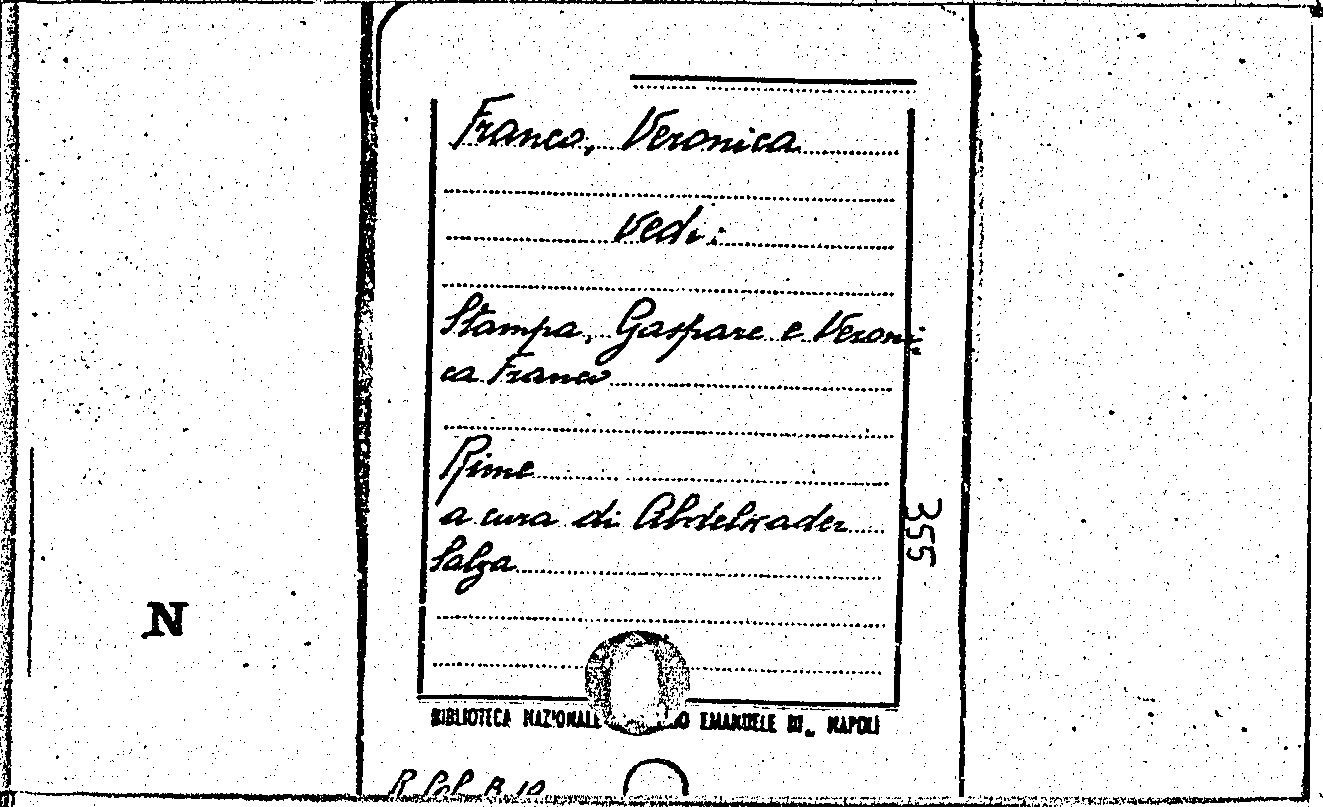 Franco, Veronica
Vedi:
Stampa, Gaspare e Veroni-
ca Franco
Rime
a cura di Abdelkader
Salza
355
N
BIBLIOTECA NAZIONALE EMANUELE III., NAPOLI